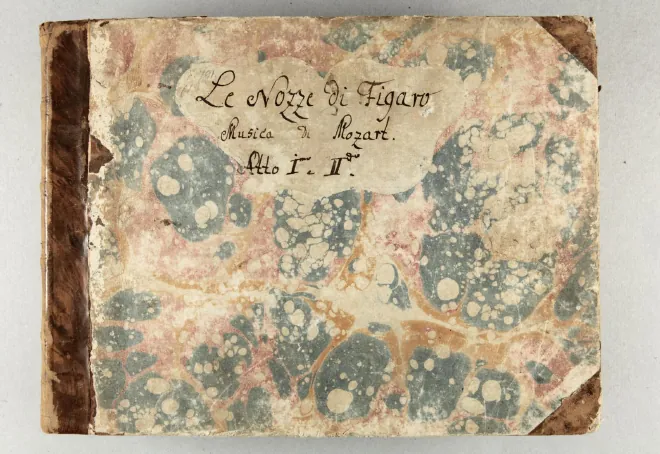 Le Nozze Di Figaro
Musica Di Mozart.
Atto I.mo e II.do